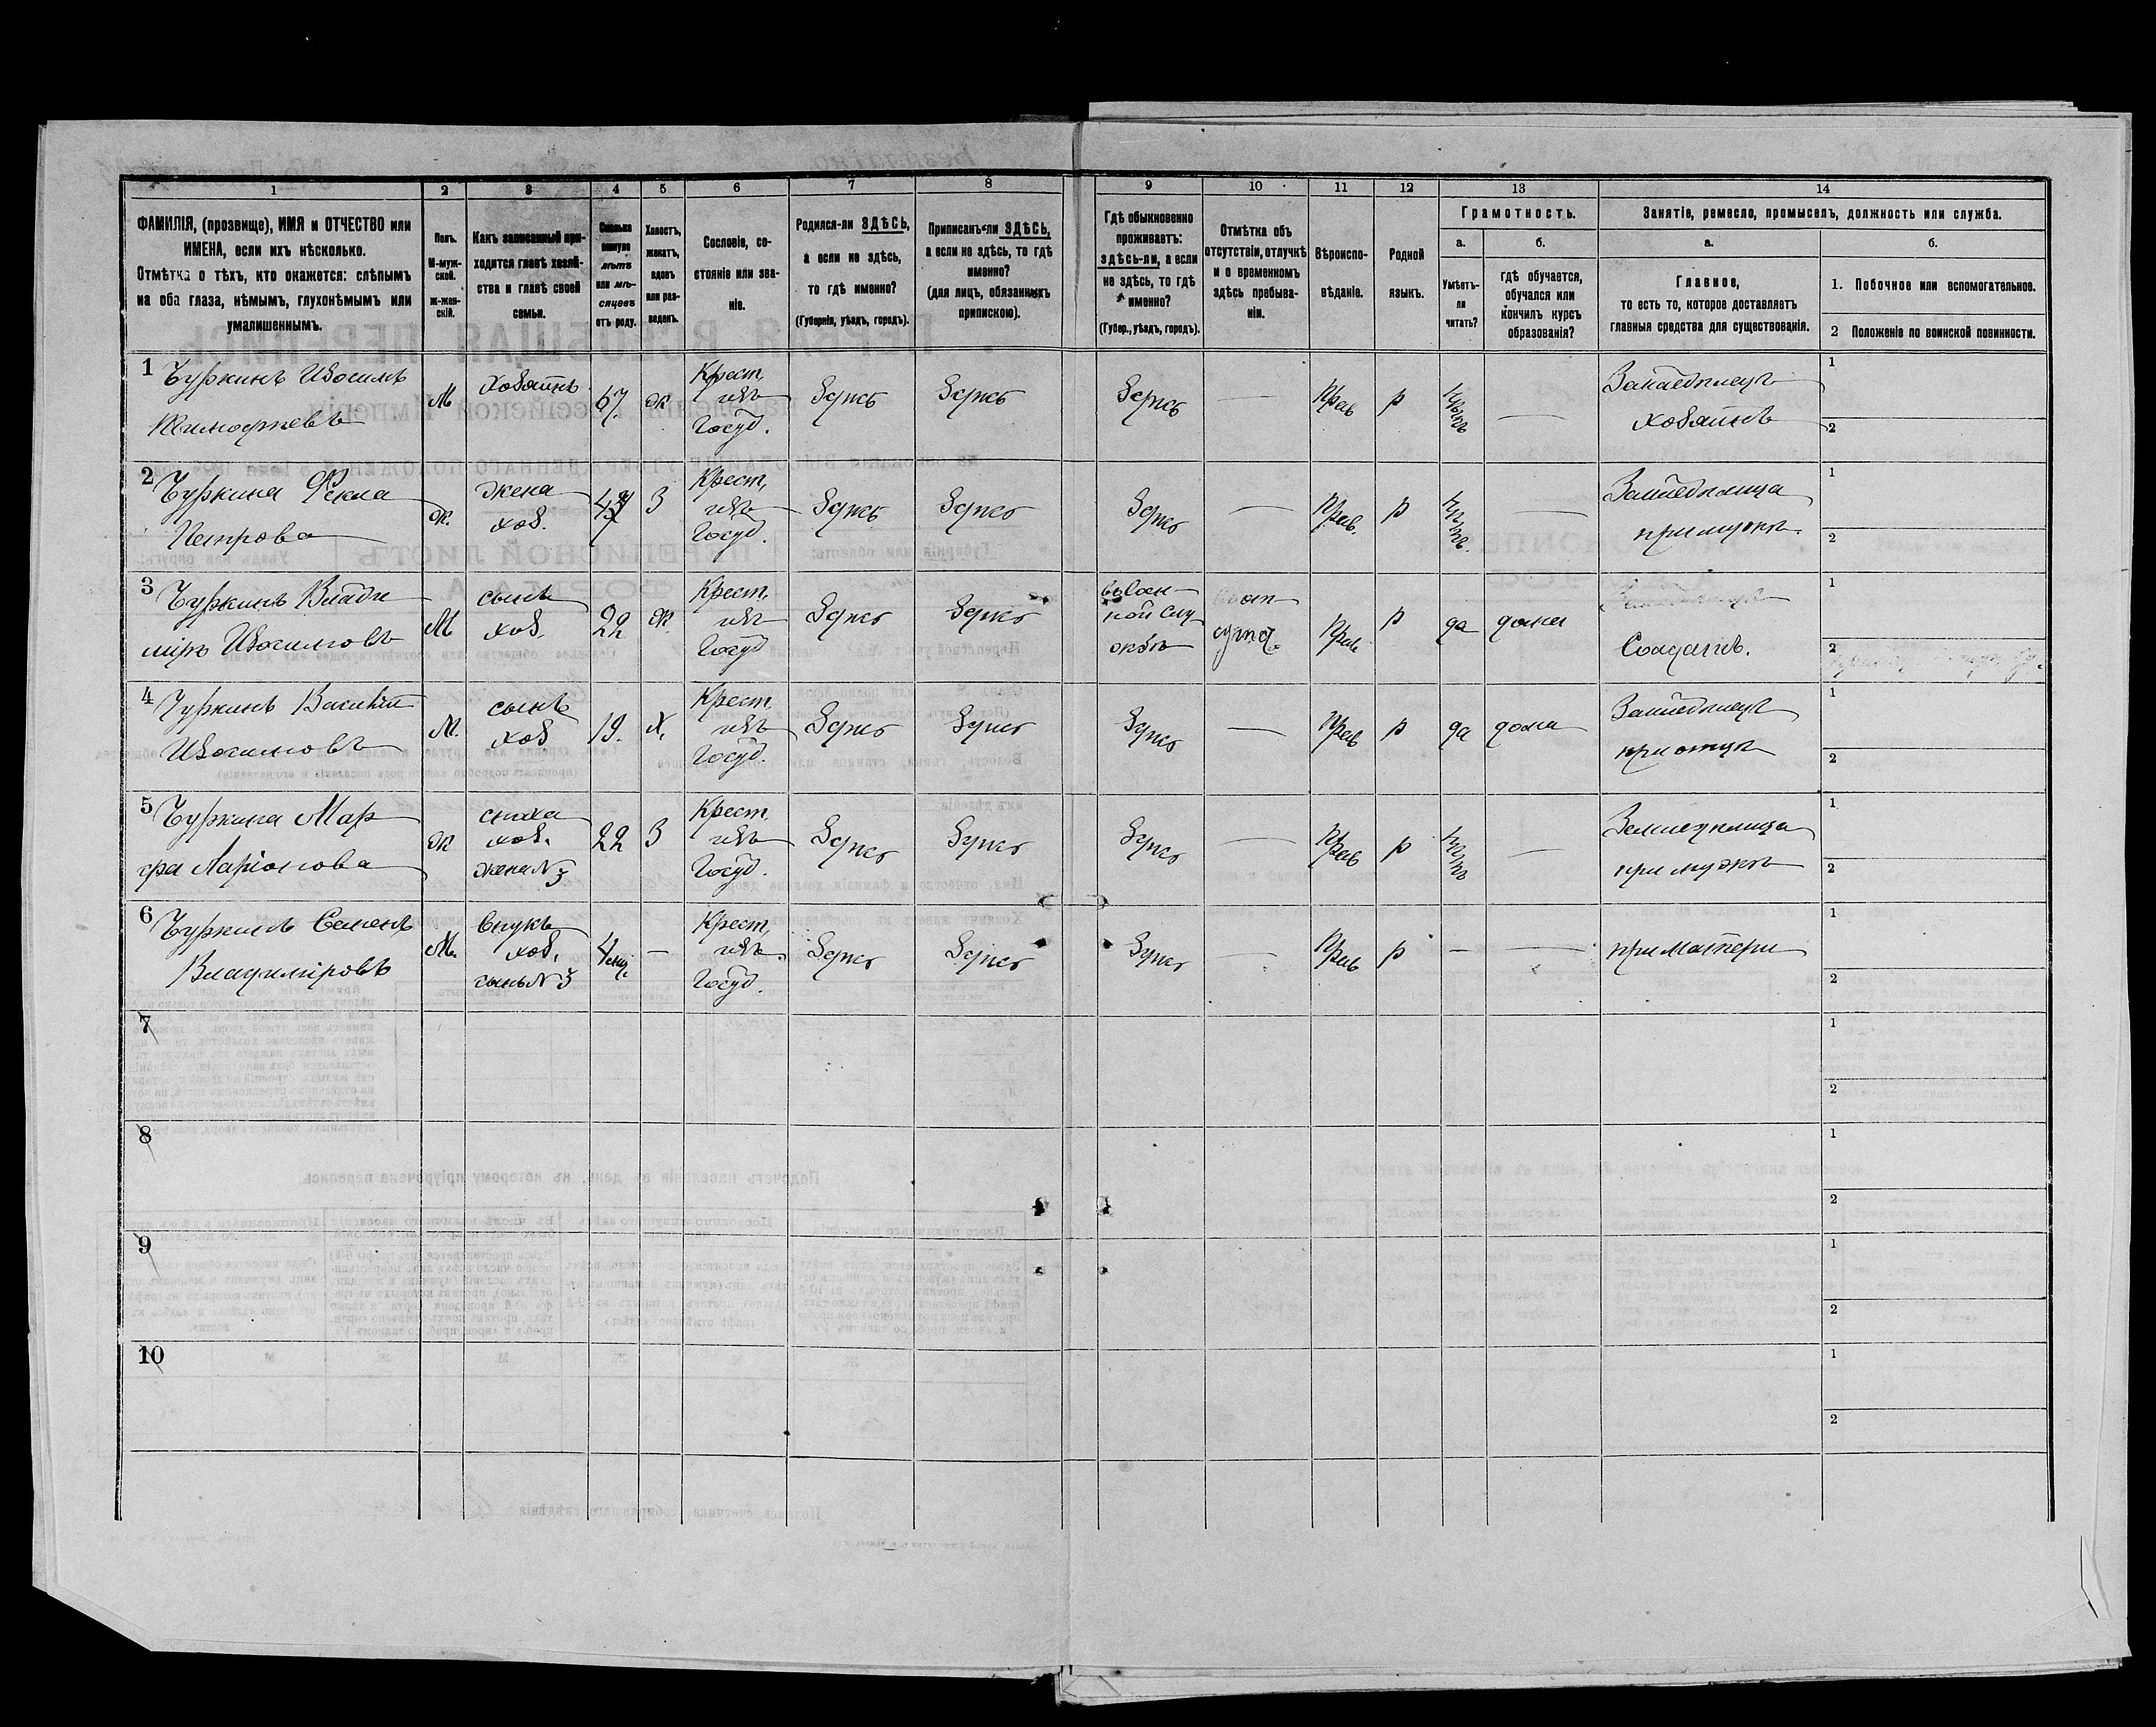 1 2 3 4 5 6 7 8 9 10 11 12 13 14
ФАМИЛІЯ, (прозвище), ИМЯ и ОТЧЕСТВО или
ИМЕНА, если ихъ нѣсколько.
Отмѣтка о тѣхъ, кто окажется: слѣпымъ
на оба глаза, нѣмымъ, глухонѣмымъ или
умалишеннымъ.
Полъ.
М-муж-
ской.
ж-жен-
скій.
Какъ записанный при-
ходится главѣ хозяй-
ства и главѣ своей
семьи.
Сколько
минуло
лѣтъ
или мѣ-
сяцевъ
отъ роду.
Холостъ,
женатъ,
вдовъ
или раз-
веденъ.
Сословіе, со-
стояніе или зва-
ніе.
Родился-ли ЗДѢСЬ,
а если не здѣсь,
то гдѣ именно?
(Губернія, уѣздъ, городъ).
Приписанъ-ли ЗДѢСЬ,
а если не здѣсь, то гдѣ
именно?
(для лицъ, обязанныхъ
припискою).
Гдѣ обыкновенно
проживаетъ:
здѣсь-ли, а если
не здѣсь, то гдѣ
именно?
(Губер., уѣздъ, городъ).
Отмѣтка объ
отсутствіи, отлучкѣ
и о временномъ
здѣсь пребыва-
ніи.
Вѣроиспо-
вѣданіе.
Родной
языкъ.
Грамотность.
а.
Умѣетъ-
ли
читать?
б.
гдѣ обучается,
обучался или
кончилъ курсъ
образованія?
Занятіе, ремесло, промыселъ, должность или служба.
а.
Главное,
то есть то, которое доставляетъ
главныя средства для существованія.
б.
1. Побочное или вспомогательное.
2 Положеніе по воинской повинности.
1 Чуркинъ Изосимъ
Тимофѣевъ
М
хозяинъ
67
ж
Крест.
изъ
Госуд.
Здѣсь
Здѣсь
Здѣсь
—
Прав
р
—
хозяинъ
1
2
2 Чуркина Фекла
Петрова
ж.
жена
хоз.
З
Крест,
изъ
Госуд.
Здѣсь
Здѣсь
Здѣсь
—
Прав.
р
—
при мужѣ.
1
2
3 Чуркинъ Влади
міръ Изосимовъ
М
сынъ
хоз.
22
ж
Крест,
изъ
Госуд
Здѣсь
Здѣсь
въ воен-
ной слу
жбѣ
Прав
р
да
дома
Солдатъ.
1
2
4 Чуркинъ Василій
Изосимовъ
М.
сынъ
хоз
19.
Х,
Крест,
изъ
Госуд.
Здѣсь
Здѣсь
Здѣсь
—
Прав
р
да
дома
при отцѣ
1
2
5 Чуркина Мар
фа Ларіонова
ж
сноха
хоз.
жена № 3
22
З
Крест,
изъ
Госуд.
Здѣсь
Здѣсь
Здѣсь
—
Прав
р
—
при мужѣ
1
2
6 Чуркинъ Семенъ
Владиміровъ
М.
внукъ
хоз,
сынъ № 3
—
Крест,
изъ
Госуд.
Здѣсь
Здѣсь
Здѣсь
—
Прав
р
—
—
при матери
1
2
7
1
2
8
1
2
9
1
2
10
1
2